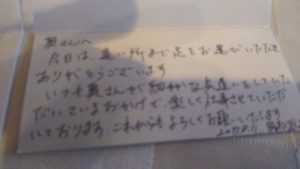 奥さんへ
今日は、遠い所まで足をお運びいただき
ありがとうございます。
いつも奥さんが細やかな気遣いをしていた
だいているおかげで、楽しく仕事させていただ
いております。これからもよろしくお願いいたします